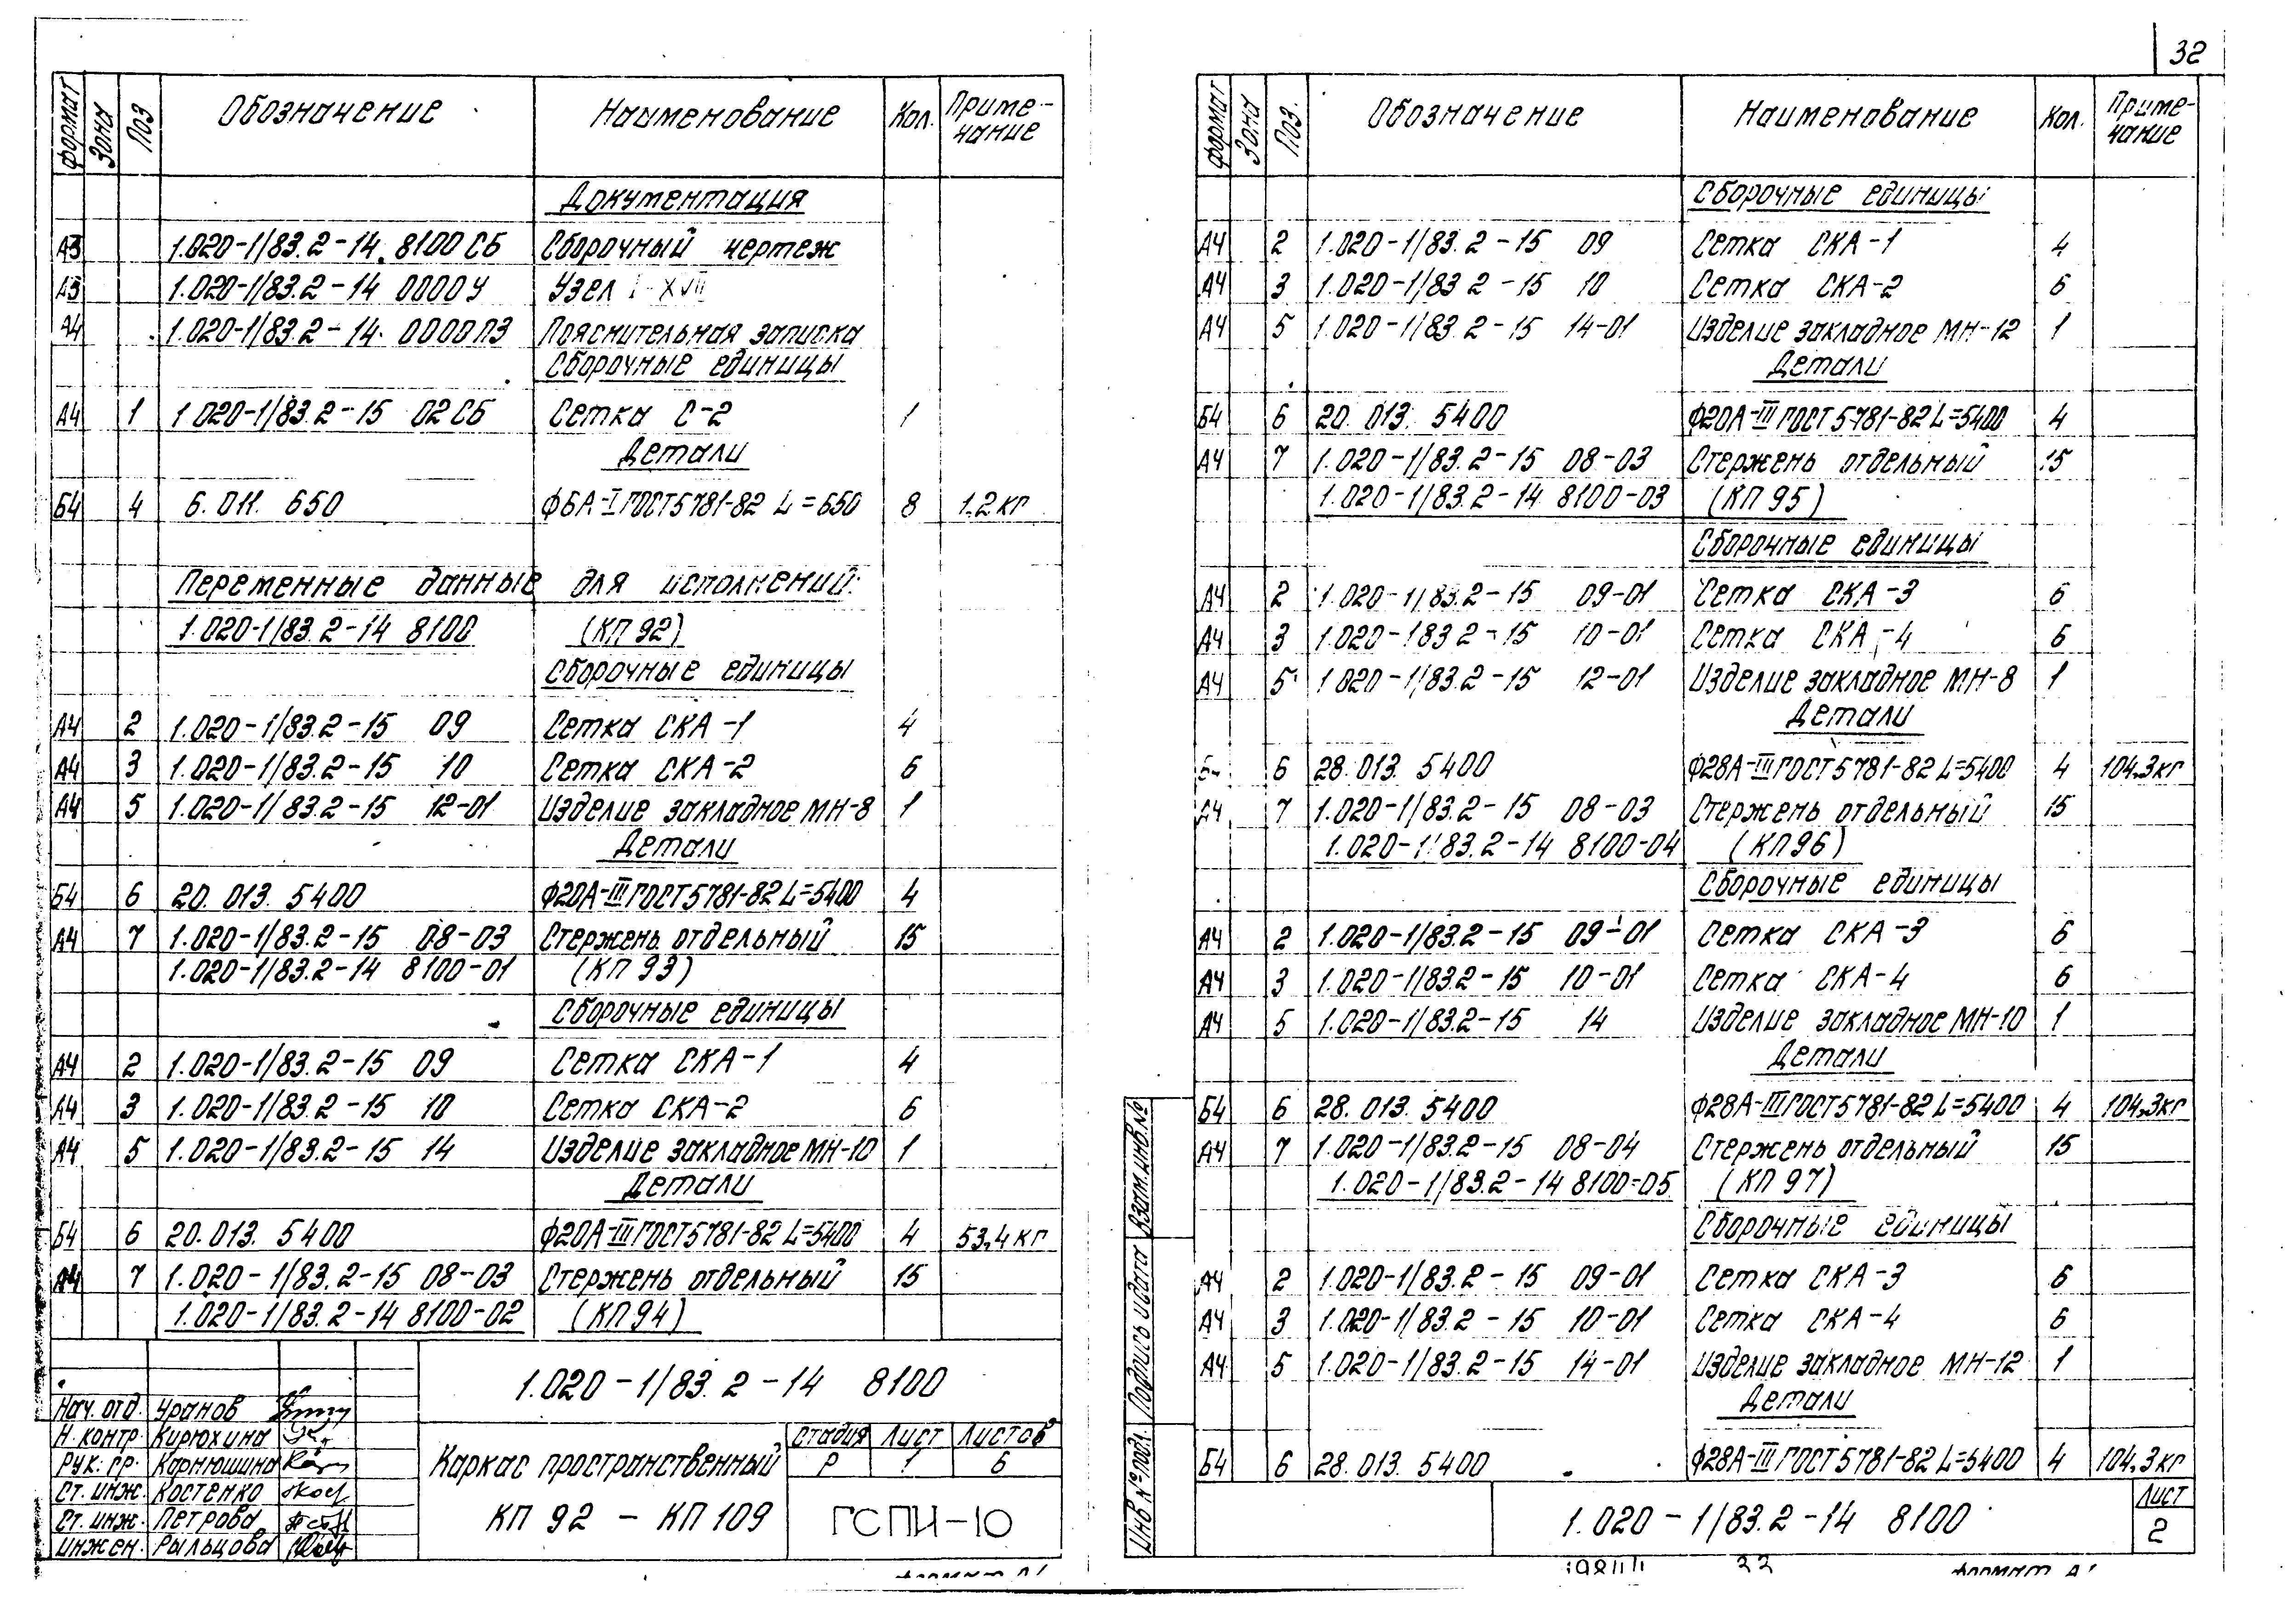 32
формат Зона Поз Обозначение Наименование Кол. Приме-чание
Документация
А3 1.020-1/83.2-14. 8100 СБ Сборочный чертеж
А3 1.020-1/83.2-14 0000У Узел I-XVII
А4 1.020-1/83.2-14. 0000ПЗ Пояснительная записка
Сборочные единицы
А4 1 1 020-1/83.2-15 02 СБ Сетка С-2 1
Детали
Б4 4 6. 011. 650 Ф6А-I ГОСТ5781-82 L=650 8 1.2 кг
Переменные данные для исполнений:
1.020-1/83.2-14 8100 (КП 92)
Сборочные единицы
А4 2 1.020-1/83.2-15 09 Сетка СКА-1 4
А4 3 1.020-1/83.2-15 10 Сетка СКА-2 6
А4 5 1.020-1/83.2-15 12-01 Изделие закладное МН-8 1
Детали
Б4 6 20. 013. 5400 Ф20А-III ГОСТ5781-82 L=5400 4
А4 7 1.020-1/83.2-15 08-03 Стержень отдельный 15
1.020-1/83.2-14 8100-01 (КП 93)
Сборочные единицы
А4 2 1.020-1/83.2-15 09 Сетка СКА-1 4
А4 3 1.020-1/83.2-15 10 Сетка СКА-2 6
А4 5 1.020-1/83.2-15 14 Изделие закладное МН-10 1
Детали
Б4 6 20. 013. 5400 Ф20А-III ГОСТ5781-82 L=5400 4 53,4 кг
А4 7 1.020-1/83.2-15 08-03 Стержень отдельный 15
1.020-1/83.2-14 8100-02 (КП94)
1.020-1/83.2-14 8100
Нач. отд. Уранов
Н. контр. Кирюхина
Рук. гр. Карнюшина
Ст. инж. Костенко
Ст. инж. Петрова
инжен. Рыльцова
Каркас пространственный
КП 92 - КП 109
Стадия Лист Листов
Р 1 6
ГСПИ-10
формат Зона Поз. Обозначение Наименование Кол. Приме-чание
Сборочные единицы
А4 2 1.020-1/83.2-15 09 Сетка СКА-1 4
А4 3 1.020-1/83 2-15 10 Сетка СКА-2 6
А4 5 1.020-1/83 2-15 14-01 Изделие закладное МН-12 1
Детали
Б4 6 20. 013. 5400 Ф20А-III ГОСТ5781-82 L=5400 4
А4 7 1.020-1/83.2-15 08-03 Стержень отдельный 15
1.020-1/83.2-14 8100-03 (КП 95)
Сборочные единицы
А4 2 1.020-1/83.2-15 09-01 Сетка СКА-3 6
А4 3 1.020-183 2-15 10-01 Сетка СКА-4 6
А4 5 1 020-1/83.2-15 12-01 Изделие закладное МН-8 1
Детали
Б4 6 28. 013. 5400 Ф28А-III ГОСТ5781-82 L=5400 4 104,3 кг
А4 7 1.020-1/83.2-15 08-03 Стержень отдельный 15
1.020-1/83.2-14 8100-04 (КП96)
Сборочные единицы
А4 2 1.020-1/83.2-15 09-01 Сетка СКА-3 6
А4 3 1.020-1/83.2-15 10-01 Сетка СКА-4 6
А4 5 1.020-1/83.2-15 14 Изделие закладное МН-10 1
Детали
Б4 6 28. 013. 5400 Ф28А-III ГОСТ5781-82 L=5400 4 104,3 кг
А4 7 1.020-1/83.2-15 08-04 Стержень отдельный 15
1.020-1/83.2-14 8100-05 (КП 97)
Сборочные единицы
А4 2 1.020-1/83.2-15 09-01 Сетка СКА-3 6
А4 3 1.020-1/83.2-15 10-01 Сетка СКА-4 6
А4 5 1.020-1/83.2-15 14-01 Изделие закладное МН-12 1
Детали
Б4 6 28. 013. 5400 Ф28А-III ГОСТ5781-82 L=5400 4 104,3 кг
Взам. инв №
Подпись и дата
Инв № подл.
1.020-1/83.2-14 8100
Лист
2